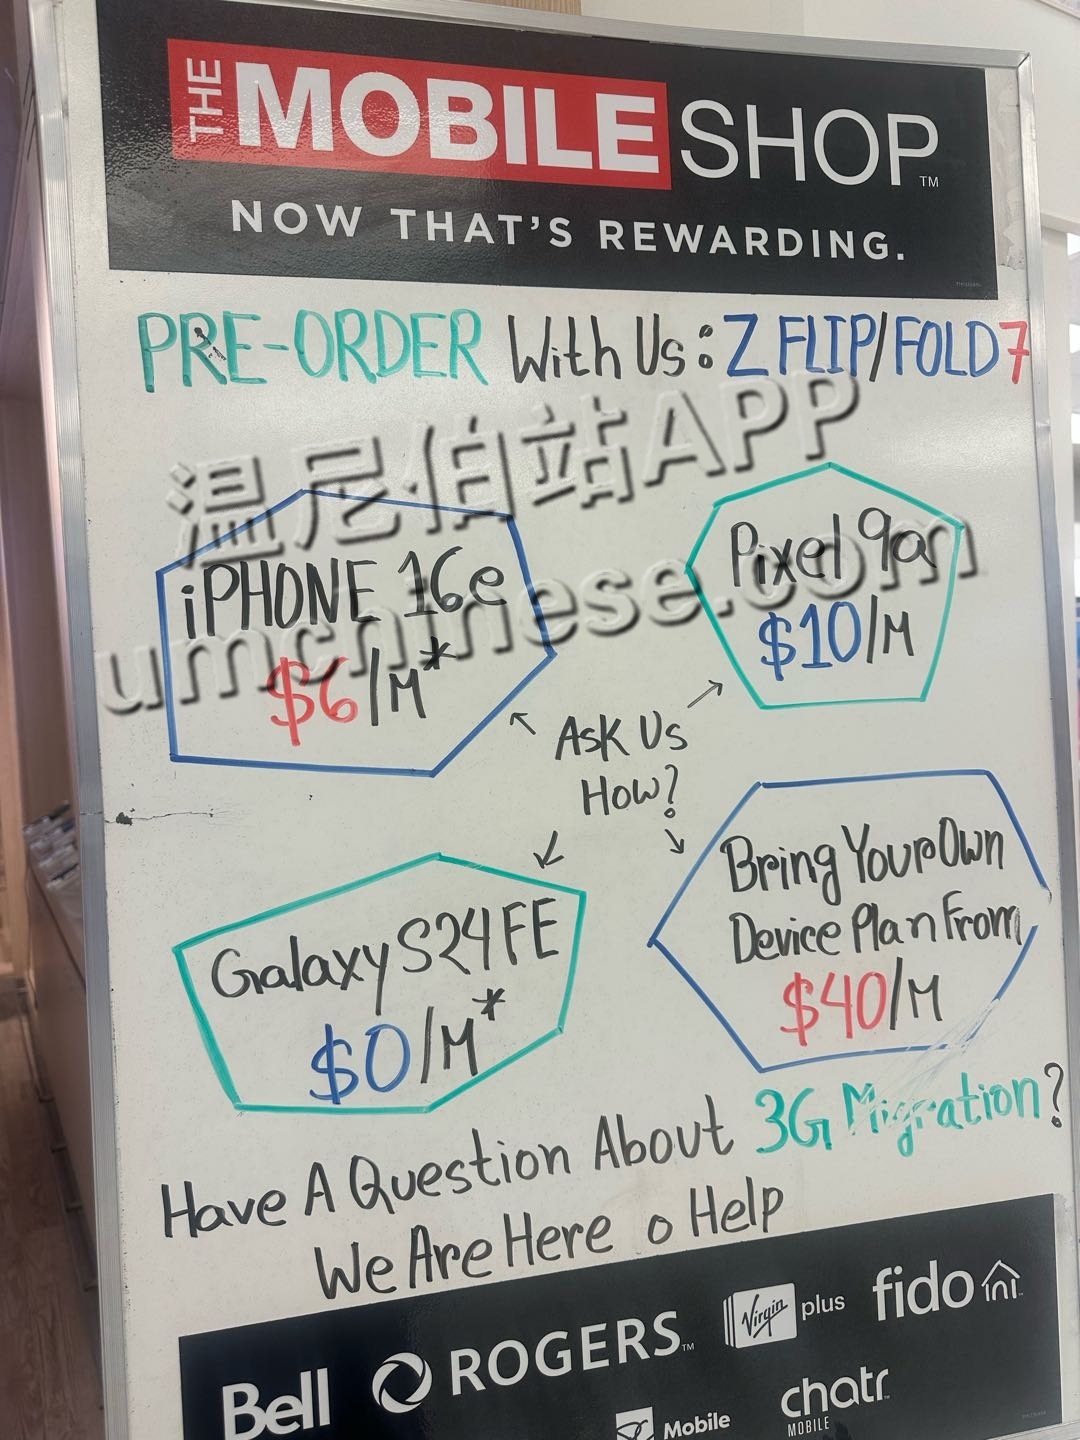 THE MOBILE SHOP™
NOW THAT'S REWARDING.
PRE-ORDER With Us: Z FLIP/FOLD 7
温尼伯站APP
umchinese.com
iPHONE 16e
$6/M*
Pixel 9a
$10/M
Ask Us
How?
Galaxy S24 FE
$0/M*
Bring Your Own
Device Plan From
$40/M
Have A Question About 3G Migration?
We Are Here o Help
Bell
ROGERS™
Virgin plus
fido
Mobile
chatr
MOBILE